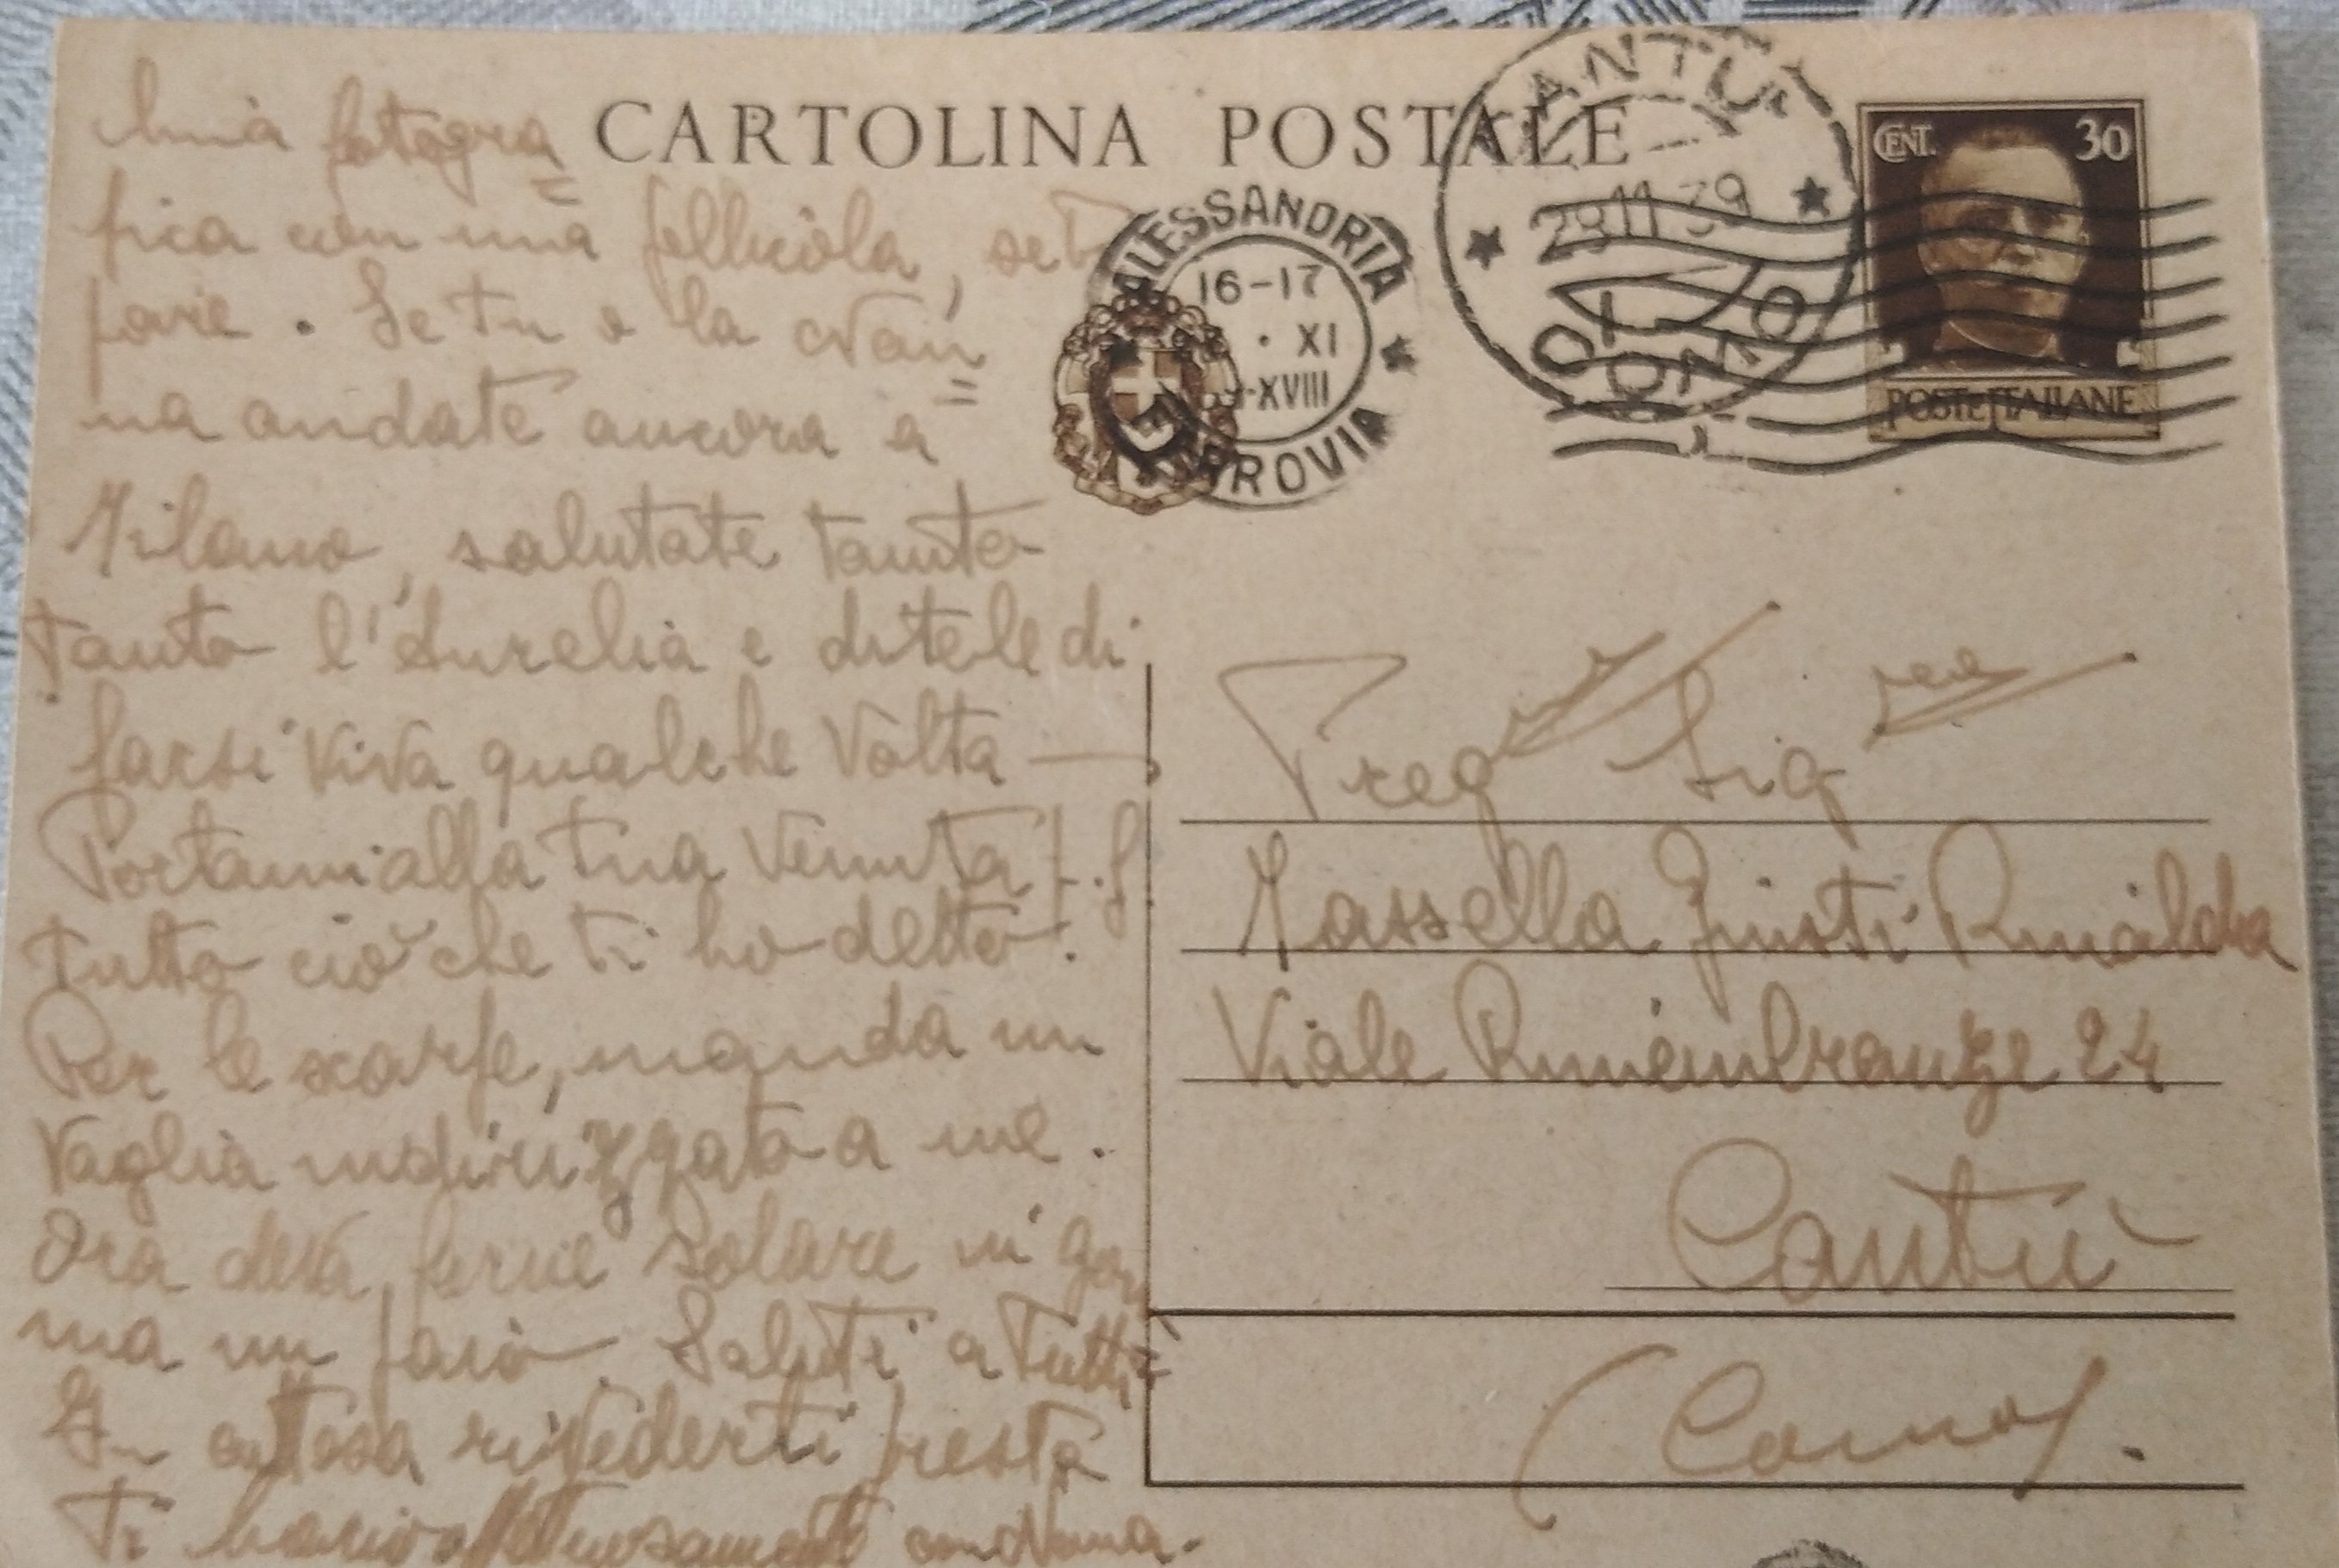 mia fotogra=
fica con una pellicola, se ti
pare. Se tu e la
na andate ancora a
Milano, salutate tanto
tanto l'Aurelia e ditele di
farsi viva qualche volta —
Portami alla tua venuta
tutto ciò che ti ho detto.
Per le scarpe, manda un
vaglia indirizzato a me.
Ora deva, ferme solare in gom
ma un paio. Saluti a tutti
In attesa rivederti presto
Ti bacio affettuosamente con Nonna.
CARTOLINA POSTALE
ALESSANDRIA
16-17
XI
XVIII
FERROVIA
CANTU'
29 11 39
CENT. 30
POSTE ITALIANE
Preg Sig
Massella Giusti Rinalda
Viale Rimembranze 24
Cantù
(Como).